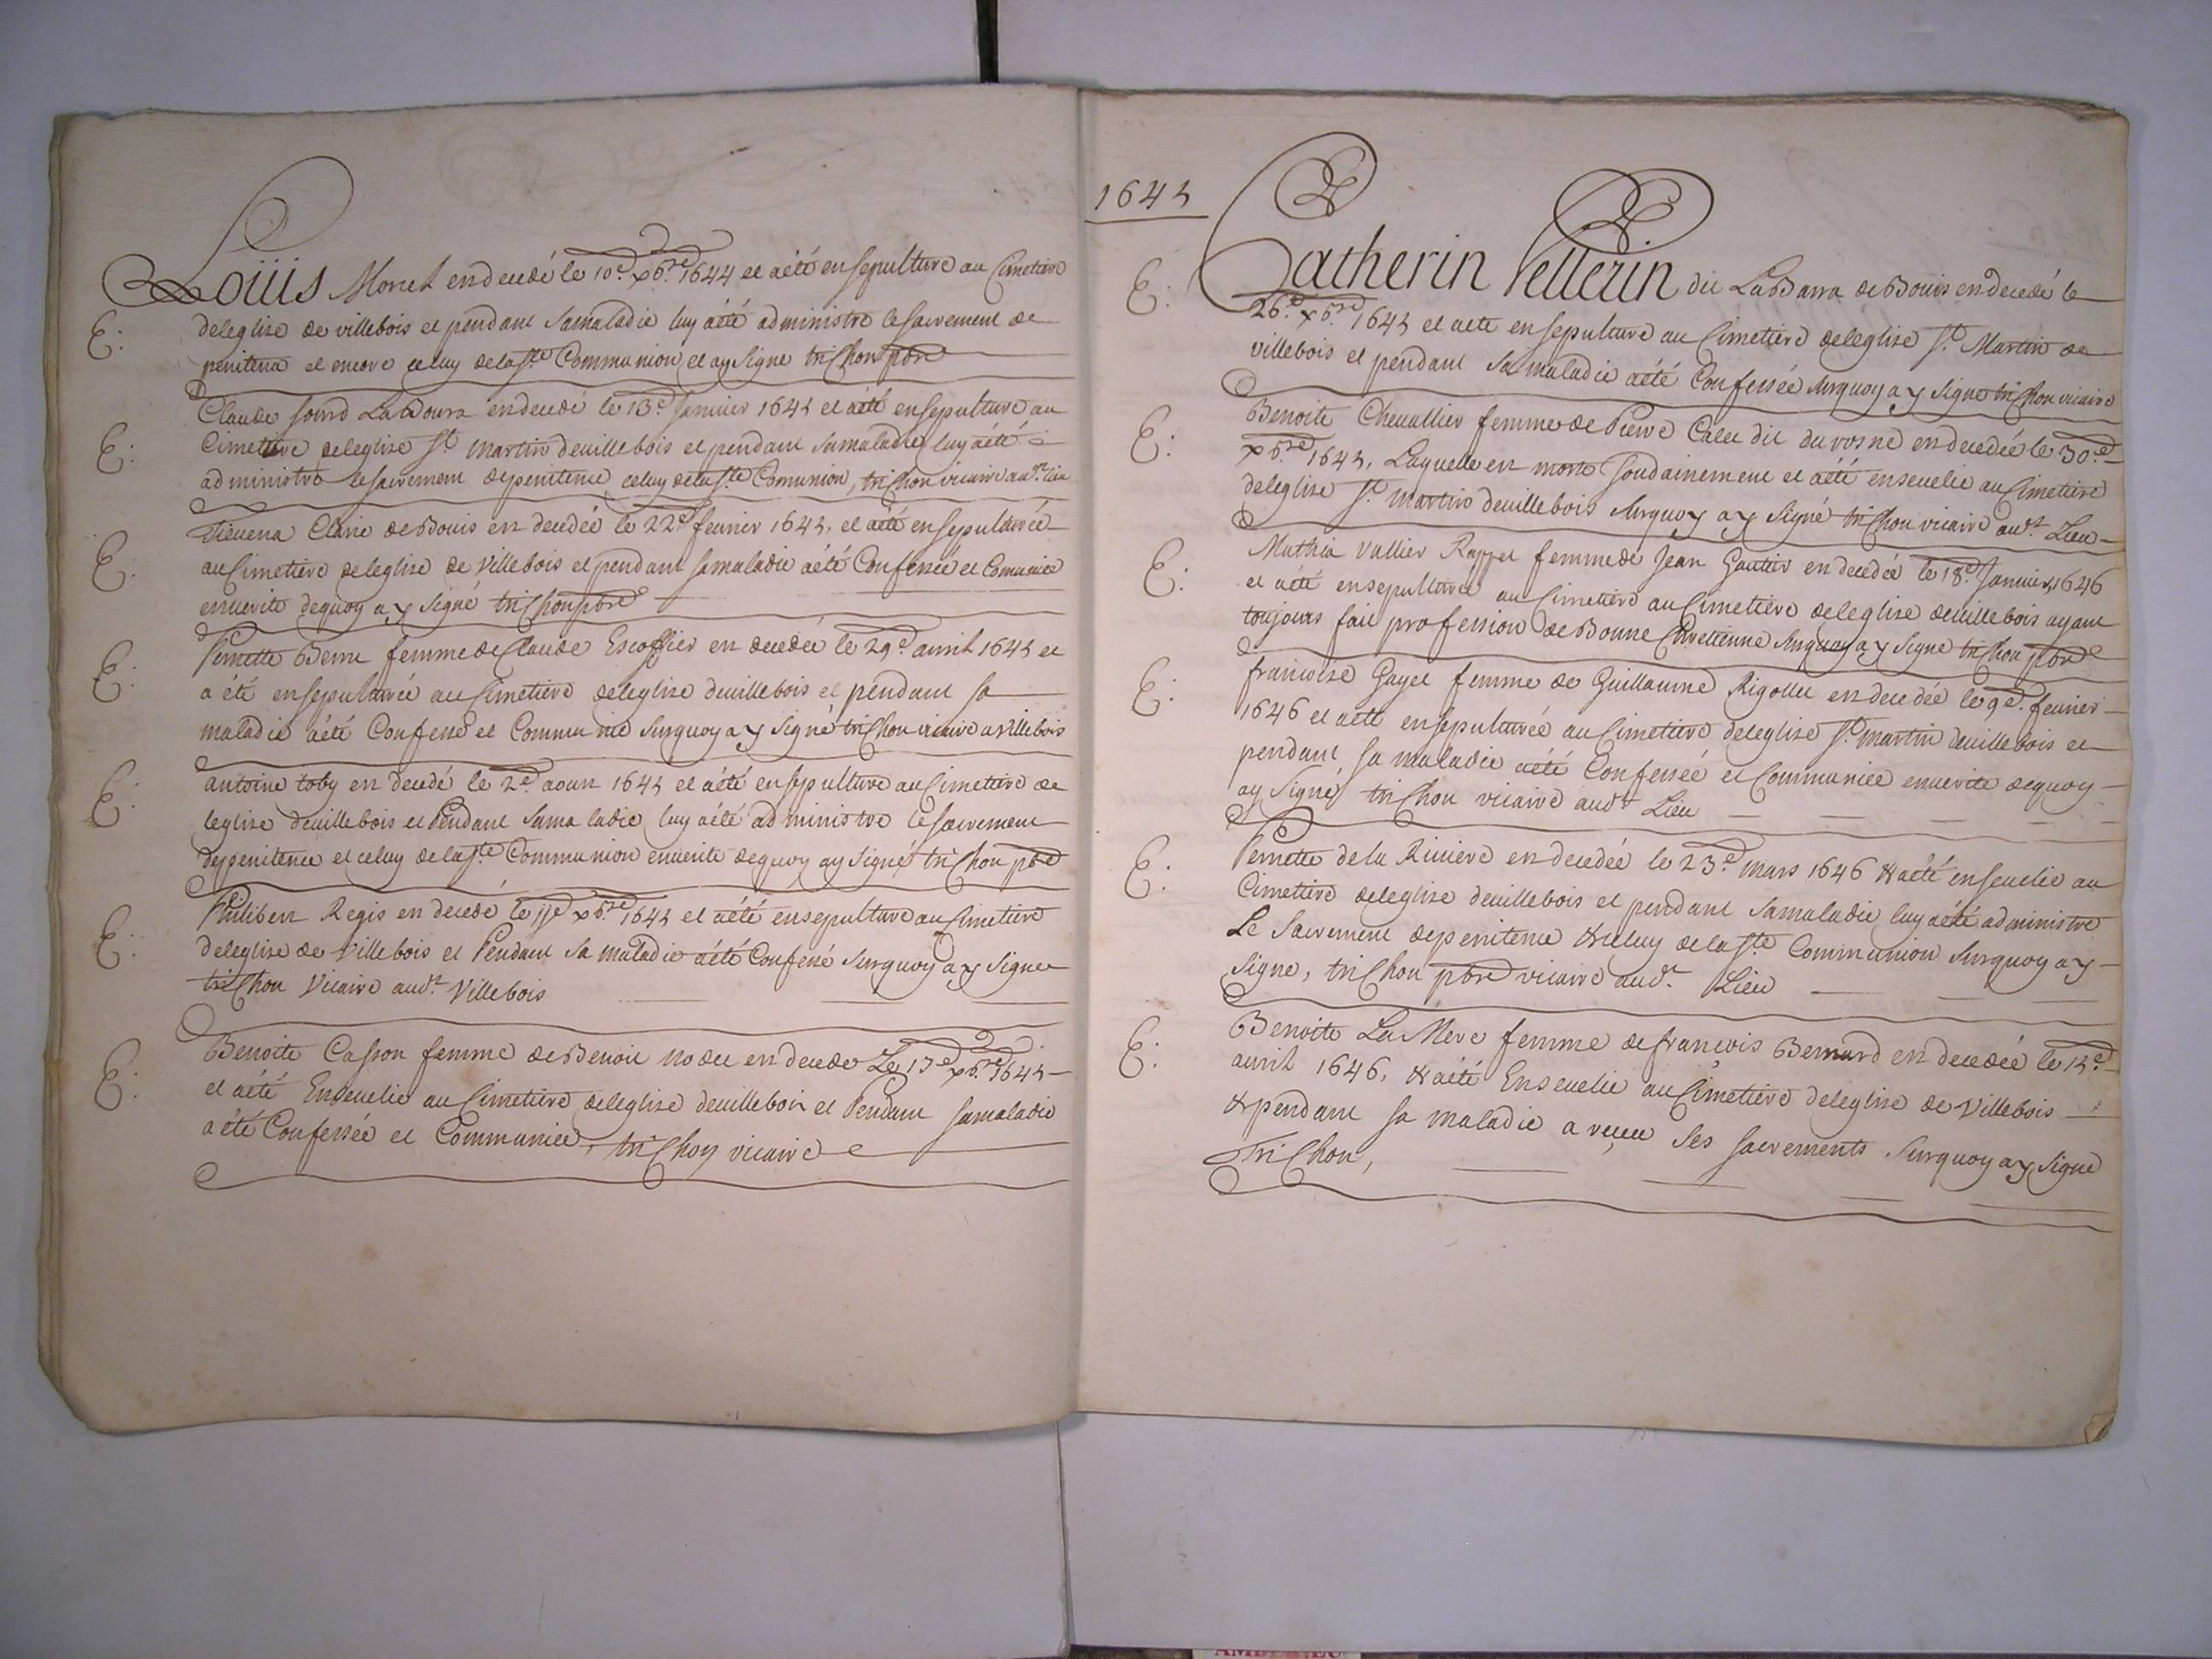 Loüis Moret en decedé le 10.e xb.re 1644 et a été ensepulturé au Cimetiere
E: deleglise de villebois et pendant samaladie luy a été administré le sacrement de
penitence et encore celuy dela s.te Communion, et ay signé trichon pbre
Claude sourd LaDoura en decedé le 13.e janvier 1645 et a été ensepulturé au
E: Cimetiere deleglise s.t martin deuillebois et pendant samaladie luy a été
administré le sacrement depenitence celuy dela s.te Comunion, trichon vicaire aud.t lieu
Claire de Bouis en decedée le 22.e feurier 1645. et a été ensepulturée
E: au Cimetiere deleglise de villebois et pendant samaladie a été Confessée et Comuniée
enuerite dequoy ay signé trichon pbre
Pernette Berne femme de Claude Escoffier en decedée le 29.e auril 1645 et
E: a été ensepulturée au Cimetiere deleglise deuillebois et pendant sa
maladie a été Confessé et Communié surquoy ay signé trichon vicaire a villebois
antoine toby en decedé le 2.e aoust 1645 et a été ensepulturé au Cimetiere de
E: leglise deuillebois et Pendant samaladie luy a été administré le sacrement
depenitence et celuy dela s.te Communion enuerite dequoy ay signé trichon pbre
Philibert Regis en decedé le xb.re 1645 et a été ensepulturé au Cimetiere
E: deleglise de Villebois et Pendant sa maladie a été Confessé surquoy ay signer
trichon Vicaire aud.t Villebois
Benoite Casson femme de Benoit en decede Le xb.re 1645
E: et a été Enseuelie au Cimetiere deleglise deuillebois et Pendant samaladie
a été Confessée et Communiée, trichon vicaire
1645
E: Catherin Pellerin dit LaBarra de Bouis en decedé le
26.e xb.re 1645 et a ete ensepulturé au Cimetiere deleglise s.t Martin de
villebois et pendant sa maladie a été Confessée surquoy ay signé trichon vicaire
Benoite Cheuallier femme de Pierre dit du rosne en decedée le 30.e
E: xb.re 1645. Laquelle en morte soudainement et a été enseuelie au Cimetiere
deleglise s.t martin deuillebois surquoy ay signé trichon vicaire aud.t Lieu
Mathia Vallier Rappet femme de Jean Gautier en decedée le 18.e Januier 1646
E: et a été ensepulturée au Cimetiere au Cimetiere deleglise deuillebois ayant
toujours fait profession de Bonne Chretienne surquoy ay signé trichon pbre
francoise Gayet femme de Guillaume Rigollet en decedée le 9.e feurier
E: 1646 et a ete ensepulturée au Cimetiere deleglise s.t martin deuillebois et
pendant sa maladie a été Confessée et Communiée enuerite dequoy
ay signé trichon vicaire aud.t Lieu
Pernette dela Riuiere en decedée le 23.e mars 1646 & a été enseuelie au
E: Cimetiere deleglise deuillebois et pendant samaladie luy a été administré
Le sacrement depenitence & celuy dela s.te Communion surquoy ay
signé, trichon pbre vicaire aud.t Lieu
Benoite La Mere femme de francois Bernard en decedée le
E: auril 1646. & a été Enseuelie au Cimetiere deleglise de Villebois
& pendant sa maladie a reçeu ses sacrements surquoy ay signé
Trichon,